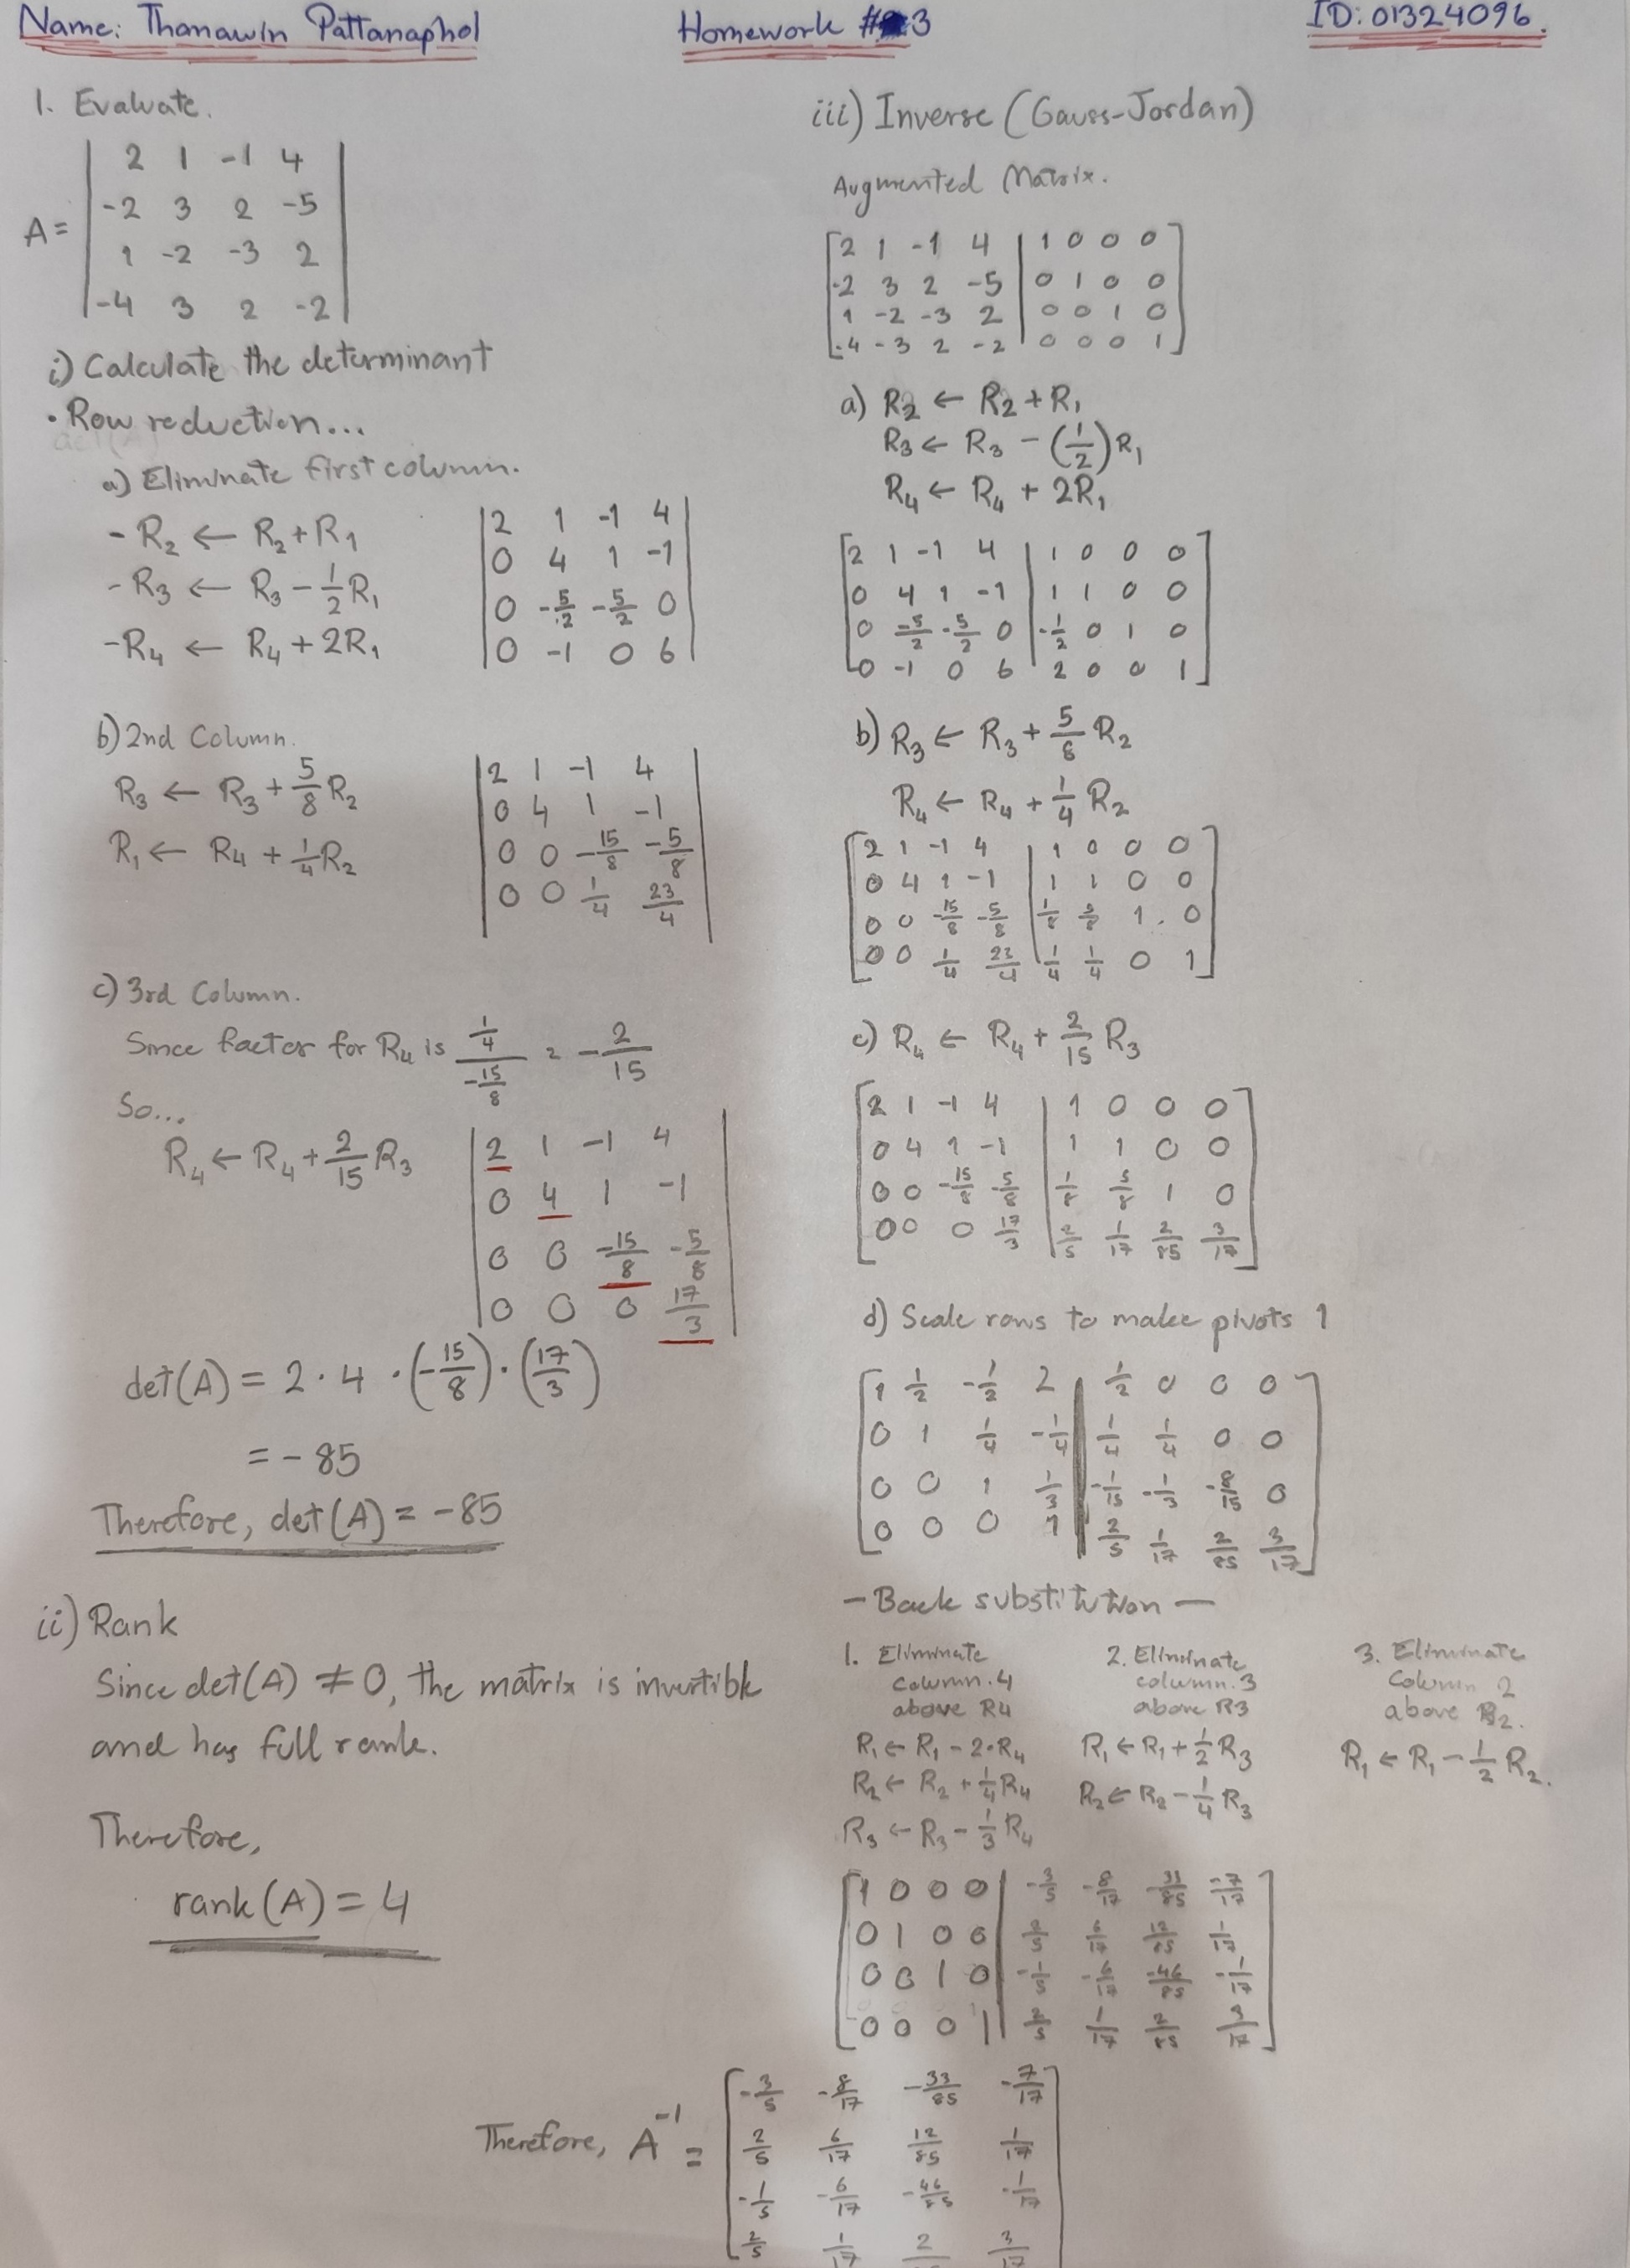 Name: Thanawin Pattanaphol
Homework #3
ID: 01324096.
1. Evaluate.
A = | 2 1 -1 4 |
| -2 3 2 -5 |
| 1 -2 -3 2 |
| -4 3 2 -2 |
i) Calculate the determinant
• Row reduction...
a) Eliminate first column.
- R2 ← R2 + R1
- R3 ← R3 - 1/2 R1
- R4 ← R4 + 2R1
| 2 1 -1 4 |
| 0 4 1 -1 |
| 0 -5/2 -5/2 0 |
| 0 -1 0 6 |
b) 2nd Column.
R3 ← R3 + 5/8 R2
R1 ← R4 + 1/4 R2
| 2 1 -1 4 |
| 0 4 1 -1 |
| 0 0 -15/8 -5/8 |
| 0 0 1/4 23/4 |
c) 3rd Column.
Since factor for R4 is (1/4)/(-15/8) = -2/15
So...
R4 ← R4 + 2/15 R3
| 2 1 -1 4 |
| 0 4 1 -1 |
| 0 0 -15/8 -5/8 |
| 0 0 0 17/3 |
det(A) = 2 · 4 · (-15/8) · (17/3)
= -85
Therefore, det(A) = -85
ii) Rank
Since det(A) ≠ 0, the matrix is invertible
and has full rank.
Therefore,
rank(A) = 4
iii) Inverse (Gauss-Jordan)
Augmented Matrix.
[ 2 1 -1 4 | 1 0 0 0 ]
[ -2 3 2 -5 | 0 1 0 0 ]
[ 1 -2 -3 2 | 0 0 1 0 ]
[ -4 -3 2 -2 | 0 0 0 1 ]
a) R2 ← R2 + R1
R3 ← R3 - (1/2) R1
R4 ← R4 + 2R1
[ 2 1 -1 4 | 1 0 0 0 ]
[ 0 4 1 -1 | 1 1 0 0 ]
[ 0 -5/2 -5/2 0 | -1/2 0 1 0 ]
[ 0 -1 0 6 | 2 0 0 1 ]
b) R3 ← R3 + 5/8 R2
R4 ← R4 + 1/4 R2
[ 2 1 -1 4 | 1 0 0 0 ]
[ 0 4 1 -1 | 1 1 0 0 ]
[ 0 0 -15/8 -5/8 | 1/8 5/8 1 0 ]
[ 0 0 1/4 23/4 | 1/4 1/4 0 1 ]
c) R4 ← R4 + 2/15 R3
[ 2 1 -1 4 | 1 0 0 0 ]
[ 0 4 1 -1 | 1 1 0 0 ]
[ 0 0 -15/8 -5/8 | 1/8 5/8 1 0 ]
[ 0 0 0 17/3 | 2/5 1/17 2/85 3/17 ]
d) Scale rows to make pivots 1
[ 1 1/2 -1/2 2 | 1/2 0 0 0 ]
[ 0 1 1/4 -1/4 | 1/4 1/4 0 0 ]
[ 0 0 1 1/3 | -1/15 -1/3 -8/15 0 ]
[ 0 0 0 1 | 2/5 1/17 2/85 3/17 ]
- Back substitution -
1. Eliminate
column.4
above R4
R1 ← R1 - 2·R4
R2 ← R2 + 1/4 R4
R3 ← R3 - 1/3 R4
2. Eliminate
column.3
above R3
R1 ← R1 + 1/2 R3
R2 ← R2 - 1/4 R3
3. Eliminate
Column 2
above R2.
R1 ← R1 - 1/2 R2.
[ 1 0 0 0 | -3/5 -8/17 -33/85 -7/17 ]
[ 0 1 0 0 | 2/5 6/17 12/85 1/17 ]
[ 0 0 1 0 | -1/5 -6/17 -46/85 -1/17 ]
[ 0 0 0 1 | 2/5 1/17 2/85 3/17 ]
Therefore, A^-1 = [ -3/5 -8/17 -33/85 -7/17 ]
[ 2/5 6/17 12/85 1/17 ]
[ -1/5 -6/17 -46/85 -1/17 ]
[ 2/5 1/17 2 3/17 ]